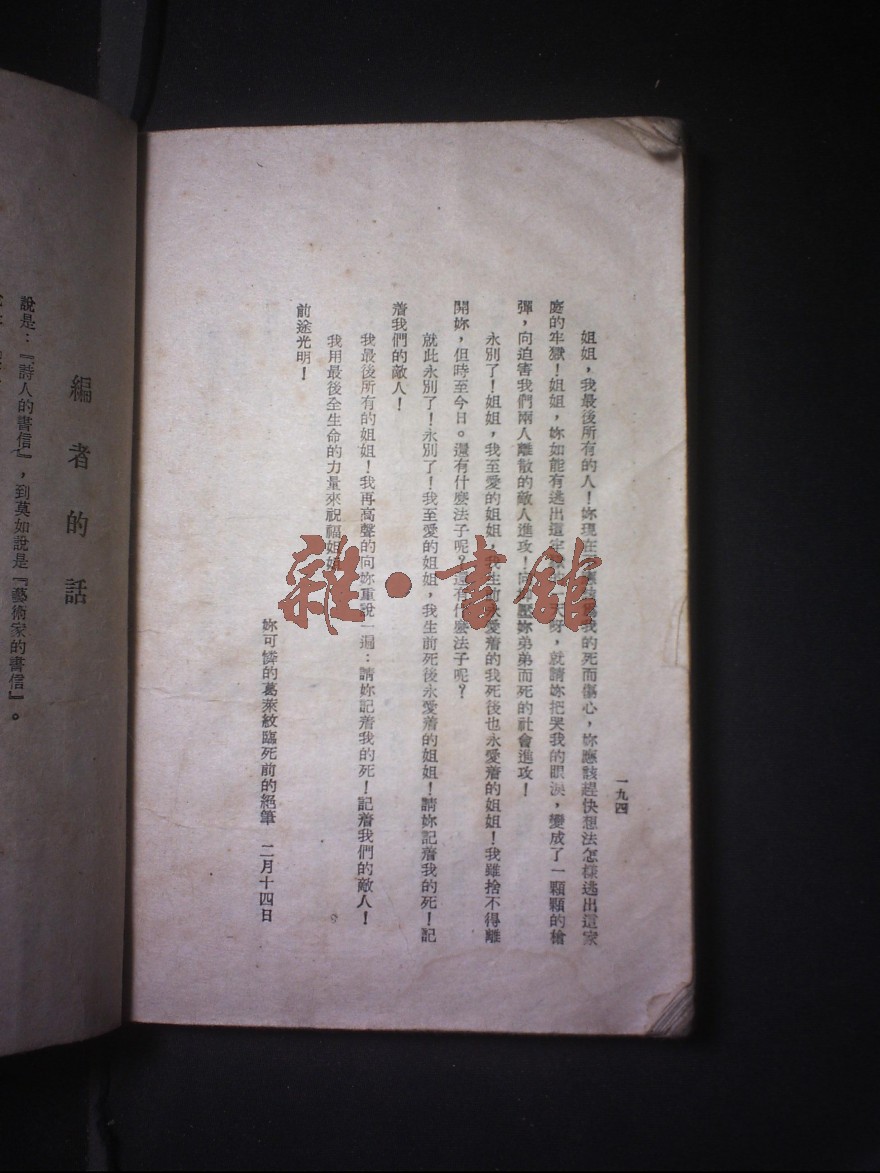 一九四
姐姐，我最後所有的人！妳現在應該我的死而傷心，妳應該趕快想法怎樣逃出這家
庭的牢獄！姐姐，妳如能有逃出這天呀，就請妳把哭我的眼淚，變成了一顆顆的槍
彈，向迫害我們兩人離散的敵人進攻！向壓妳弟弟而死的社會進攻！
永別了！姐姐，我至愛的姐姐，我生前永愛着的我死後也永愛着的姐姐！我雖捨不得離
開妳，但時至今日。還有什麼法子呢？還有什麼法子呢？
就此永別了！永別了！我至愛的姐姐，我生前死後永愛着的姐姐！請妳記着我的死！記
着我們的敵人！
我最後所有的姐姐！我再高聲的向妳重說一遍：請妳記着我的死！記着我們的敵人！
我用最後全生命的力量來祝福姐姐
前途光明！
妳可憐的葛萊紋臨死前的絕筆　二月十四日
編者的話
說是：『詩人的書信』，到莫如說是『藝術家的書信』。
雜·書館